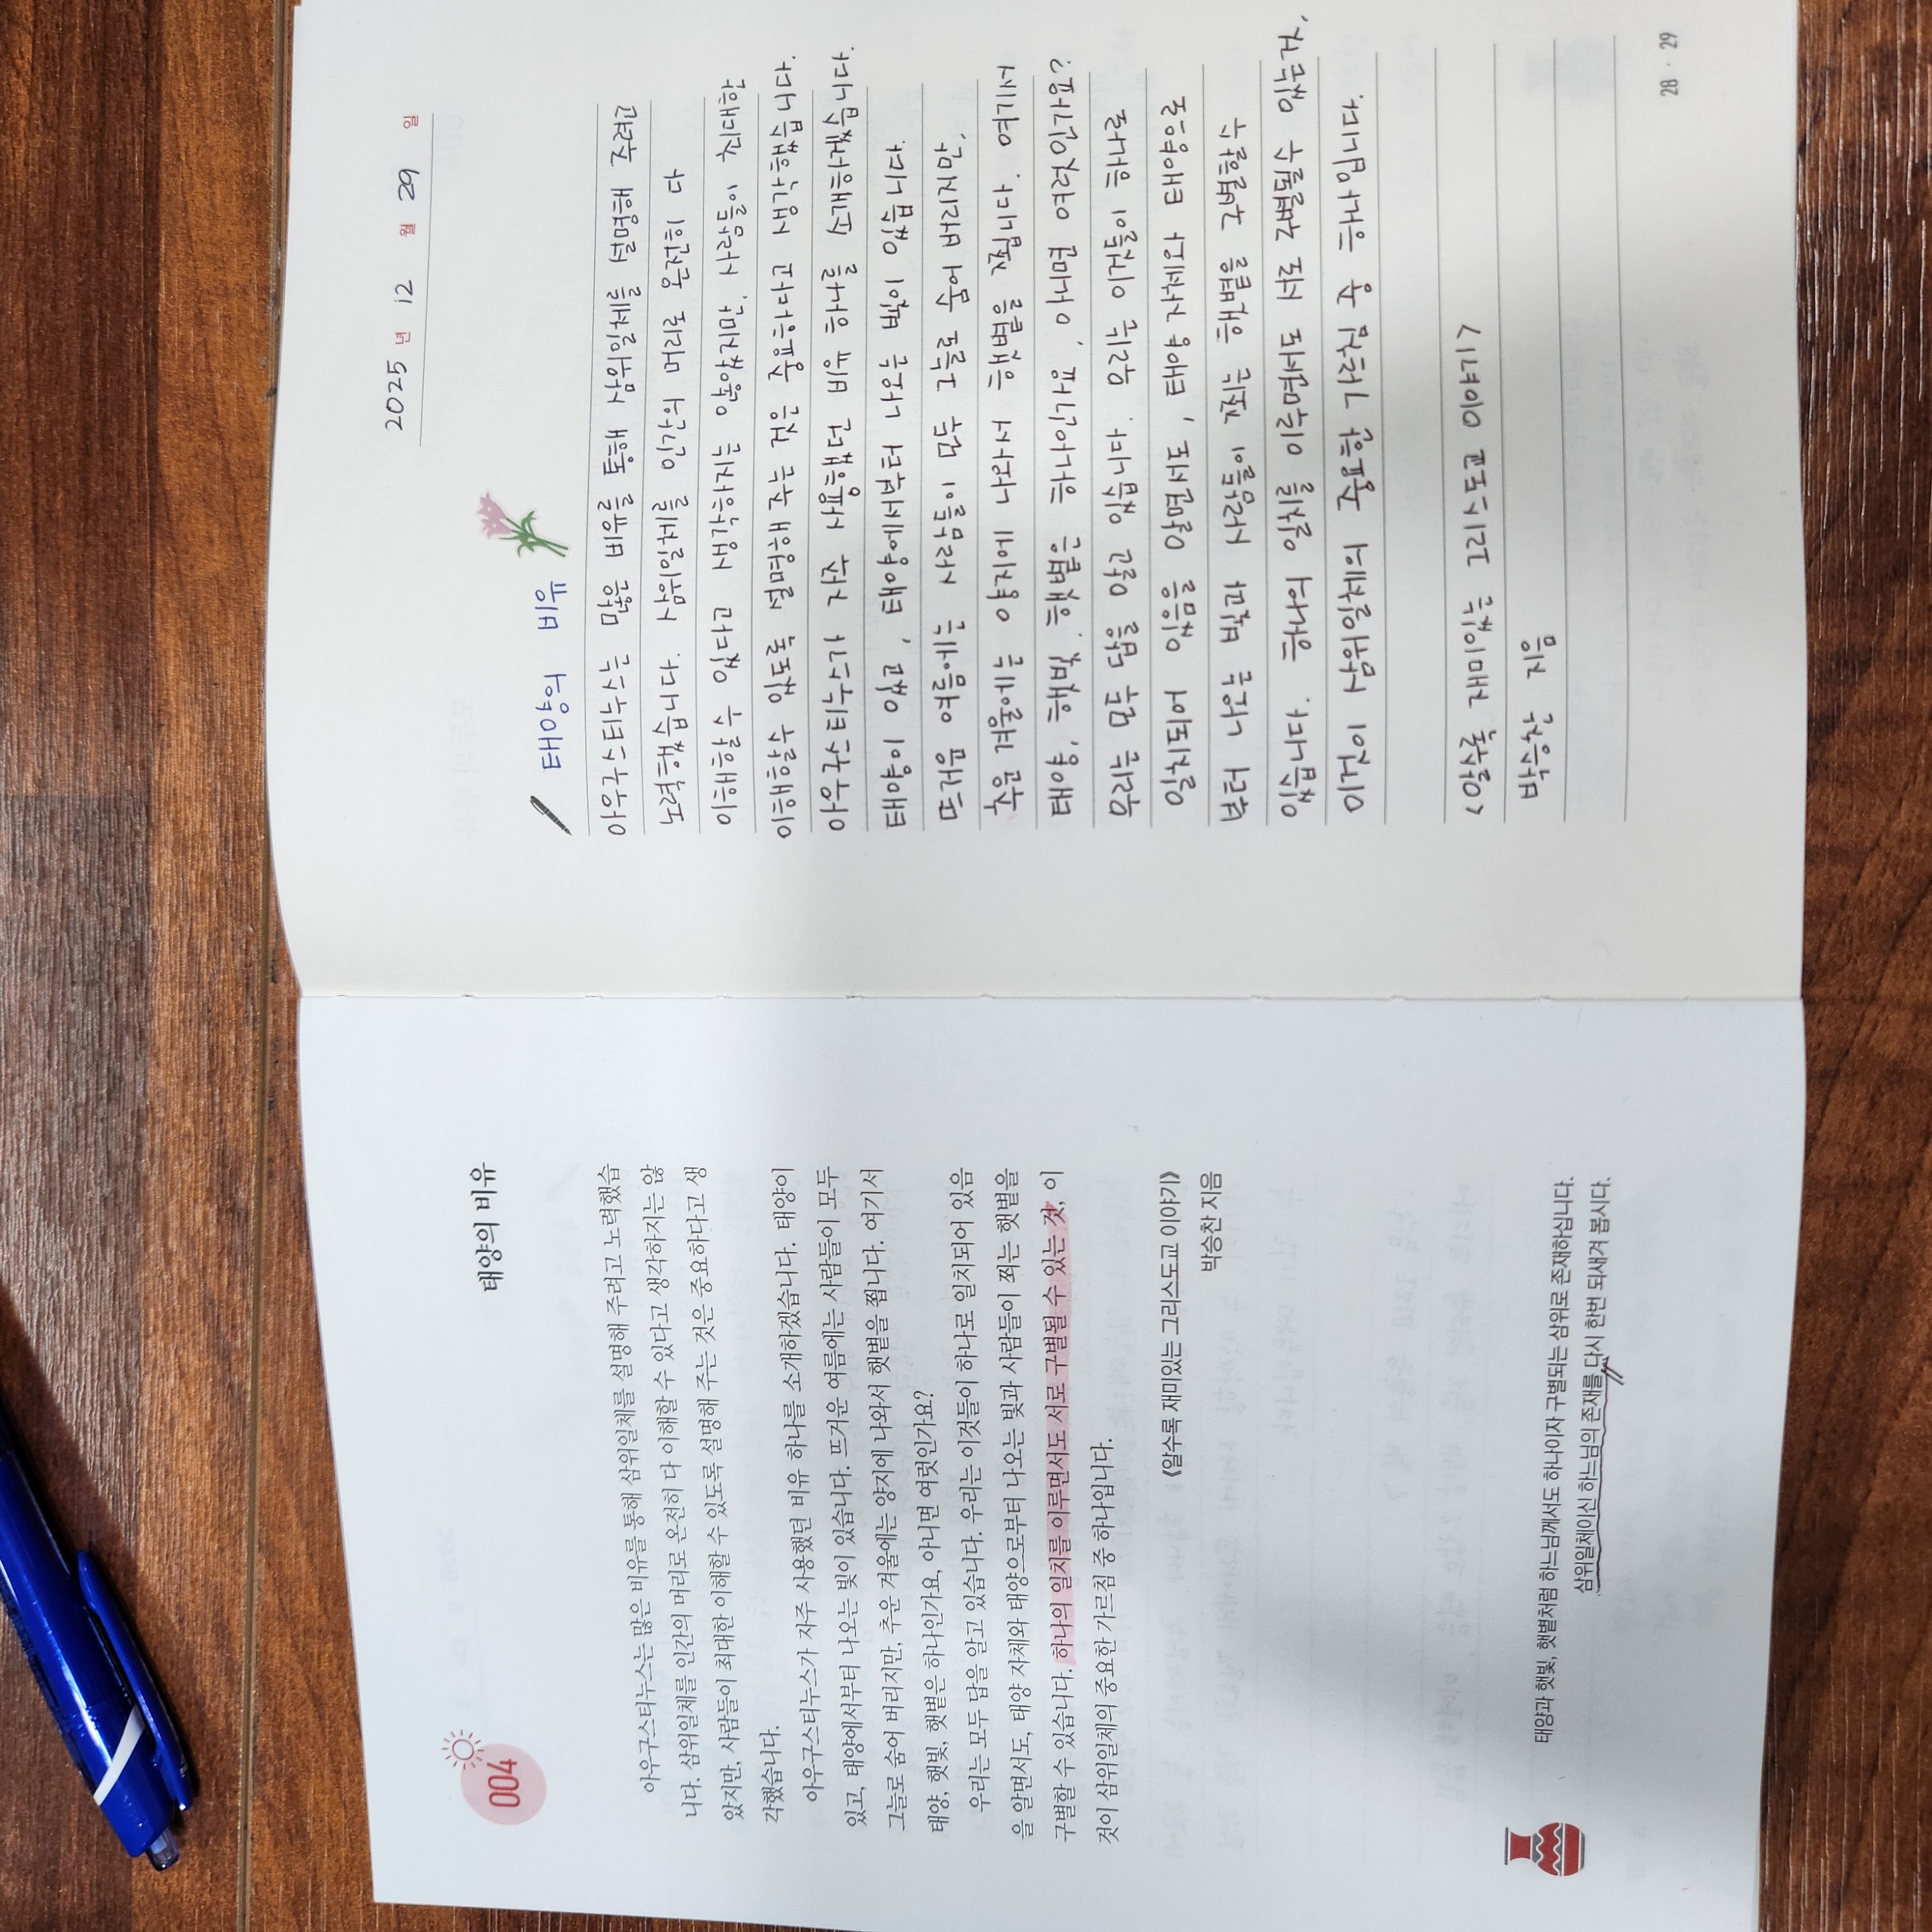 004
태양의 비유
아우구스티누스는 많은 비유를 통해 삼위일체를 설명해 주려고 노력했습
니다. 삼위일체를 인간의 머리로 온전히 다 이해할 수 있다고 생각하지는 않
았지만, 사람들이 최대한 이해할 수 있도록 설명해 주는 것은 중요하다고 생
각했습니다.
아우구스티누스가 자주 사용했던 비유 하나를 소개하겠습니다. 태양이
있고, 태양에서부터 나오는 빛이 있습니다. 뜨거운 여름에는 사람들이 모두
그늘로 숨어 버리지만, 추운 겨울에는 양지에 나와서 햇볕을 쬡니다. 여기서
태양, 햇빛, 햇볕은 하나인가요, 아니면 여럿인가요?
우리는 모두 답을 알고 있습니다. 우리는 이것들이 하나로 일치되어 있음
을 알면서도, 태양 자체와 태양으로부터 나오는 빛과 사람들이 쬐는 햇볕을
구별할 수 있습니다. 하나의 일치를 이루면서도 서로 구별될 수 있는 것, 이
것이 삼위일체의 중요한 가르침 중 하나입니다.
《알수록 재미있는 그리스도교 이야기》
박승찬 지음
태양과 햇빛, 햇볕처럼 하느님께서도 하나이자 구별되는 삼위로 존재하십니다.
삼위일체이신 하느님의 존재를 다시 한번 되새겨 봅시다.
2025 년 12 월 29 일
태양의 비유
아우구스티누스는 많은 비유를 통해 삼위일체를 설명해 주려고
노력했습니다. 삼위일체를 인간의 머리로 온전히 다
이해할 수 있다고 생각하지는 않았지만, 사람들이 최대한
이해할 수 있도록 설명해 주는 것은 중요하다고 생각했습니다.
아우구스티누스가 자주 사용했던 비유 하나를 소개하겠습니다.
태양이 있고, 태양에서부터 나오는 빛이 있습니다.
뜨거운 여름에는 사람들이 모두 그늘로 숨어 버리지만,
추운 겨울에는 양지에 나와서 햇볕을 쬡니다. 여기서
태양, 햇빛, 햇볕은 하나인가요, 아니면 여럿인가요?
우리는 모두 답을 알고 있습니다. 우리는 이것들이 하나로
일치되어 있음을 알면서도, 태양 자체와 태양으로
부터 나오는 빛과 사람들이 쬐는 햇볕을 구별할 수
있습니다. 하나의 일치를 이루면서도 서로 구별될 수 있는 것,
이것이 삼위일체의 중요한 가르침 중 하나입니다.
<알수록 재미있는 그리스도교 이야기>
박승찬 지음
28 · 29